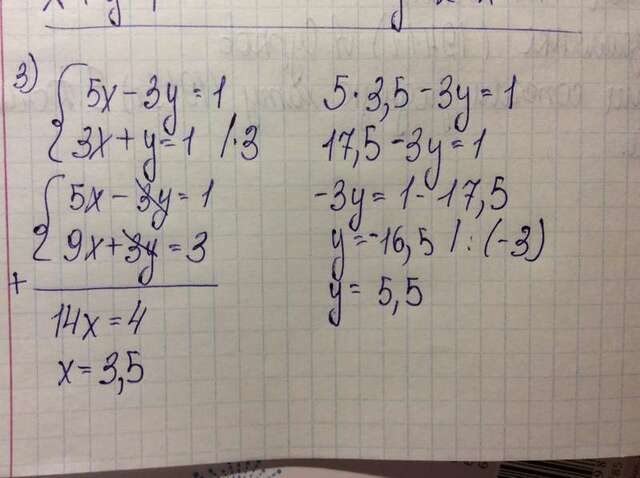 3)
5x - 3y = 1
3x + y = 1 /·3
5x - 3y = 1
9x + 3y = 3
+
14x = 4
x = 3,5
5 · 3,5 - 3y = 1
17,5 - 3y = 1
-3y = 1 - 17,5
y = -16,5 / : (-3)
y = 5,5